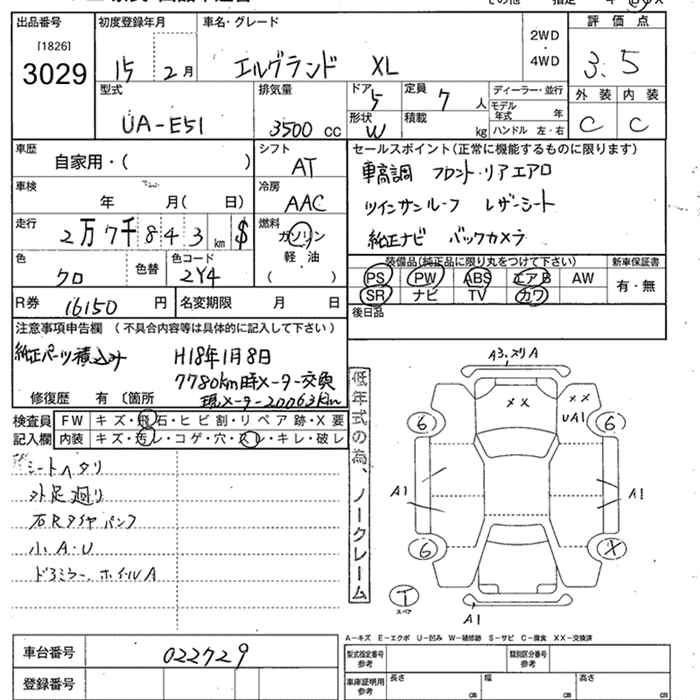 出品番号 初度登録年月 車名・グレード 評価点
[1826]
3029 15 2月 エルグランド XL 2WD・4WD 3.5
型式 排気量 ドア 5 定員 7 人 ディーラー・並行 外装 内装
UA-E51 3500 cc 形状 W 積載 kg モデル年式 年 ハンドル 左・右 C C
車歴 シフト セールスポイント(正常に機能するものに限ります)
自家用・( ) AT 車高調 フロント・リアエアロ
車検 冷房 ツインサンルーフ レザーシート
年 月( 日) AAC 純正ナビ バックカメラ
走行 燃料
2万7千843 km $ ガソリン
軽油
( )
色 色替 色コード 装備品(純正品に限り丸をつけて下さい) 新車保証書
クロ 2Y4 PS PW ABS エアB AW 有・無
SR ナビ TV カワ
R券 16150 円 名変期限 月 日 後日品
注意事項申告欄 (不具合内容等は具体的に記入して下さい)
純正パーツ積込み H18年1月8日
7780km時メーター交換
現メーター20063km
修復歴 有〔 箇所
検査員 FW キズ・飛石・ヒビ割・リペア跡・X要
記入欄 内装 キズ・汚レ・コゲ・穴・スレ・キレ・破レ
シートヘタリ
外足廻リ
右Rタイヤパンク
小A・U
ドアミラー、ホイルA
低年式の為、ノークレーム
A3.メリA
××
××
UA1
6
6
A1
A1
6
X
T
スペア
A1
A-キズ E-エクボ U-凹み W-補修跡 S-サビ C-腐食 XX-交換済
車台番号 022729
登録番号
型式指定番号 参考 類別区分番号 参考
車庫証明用 参考 長さ cm 幅 cm 高さ cm